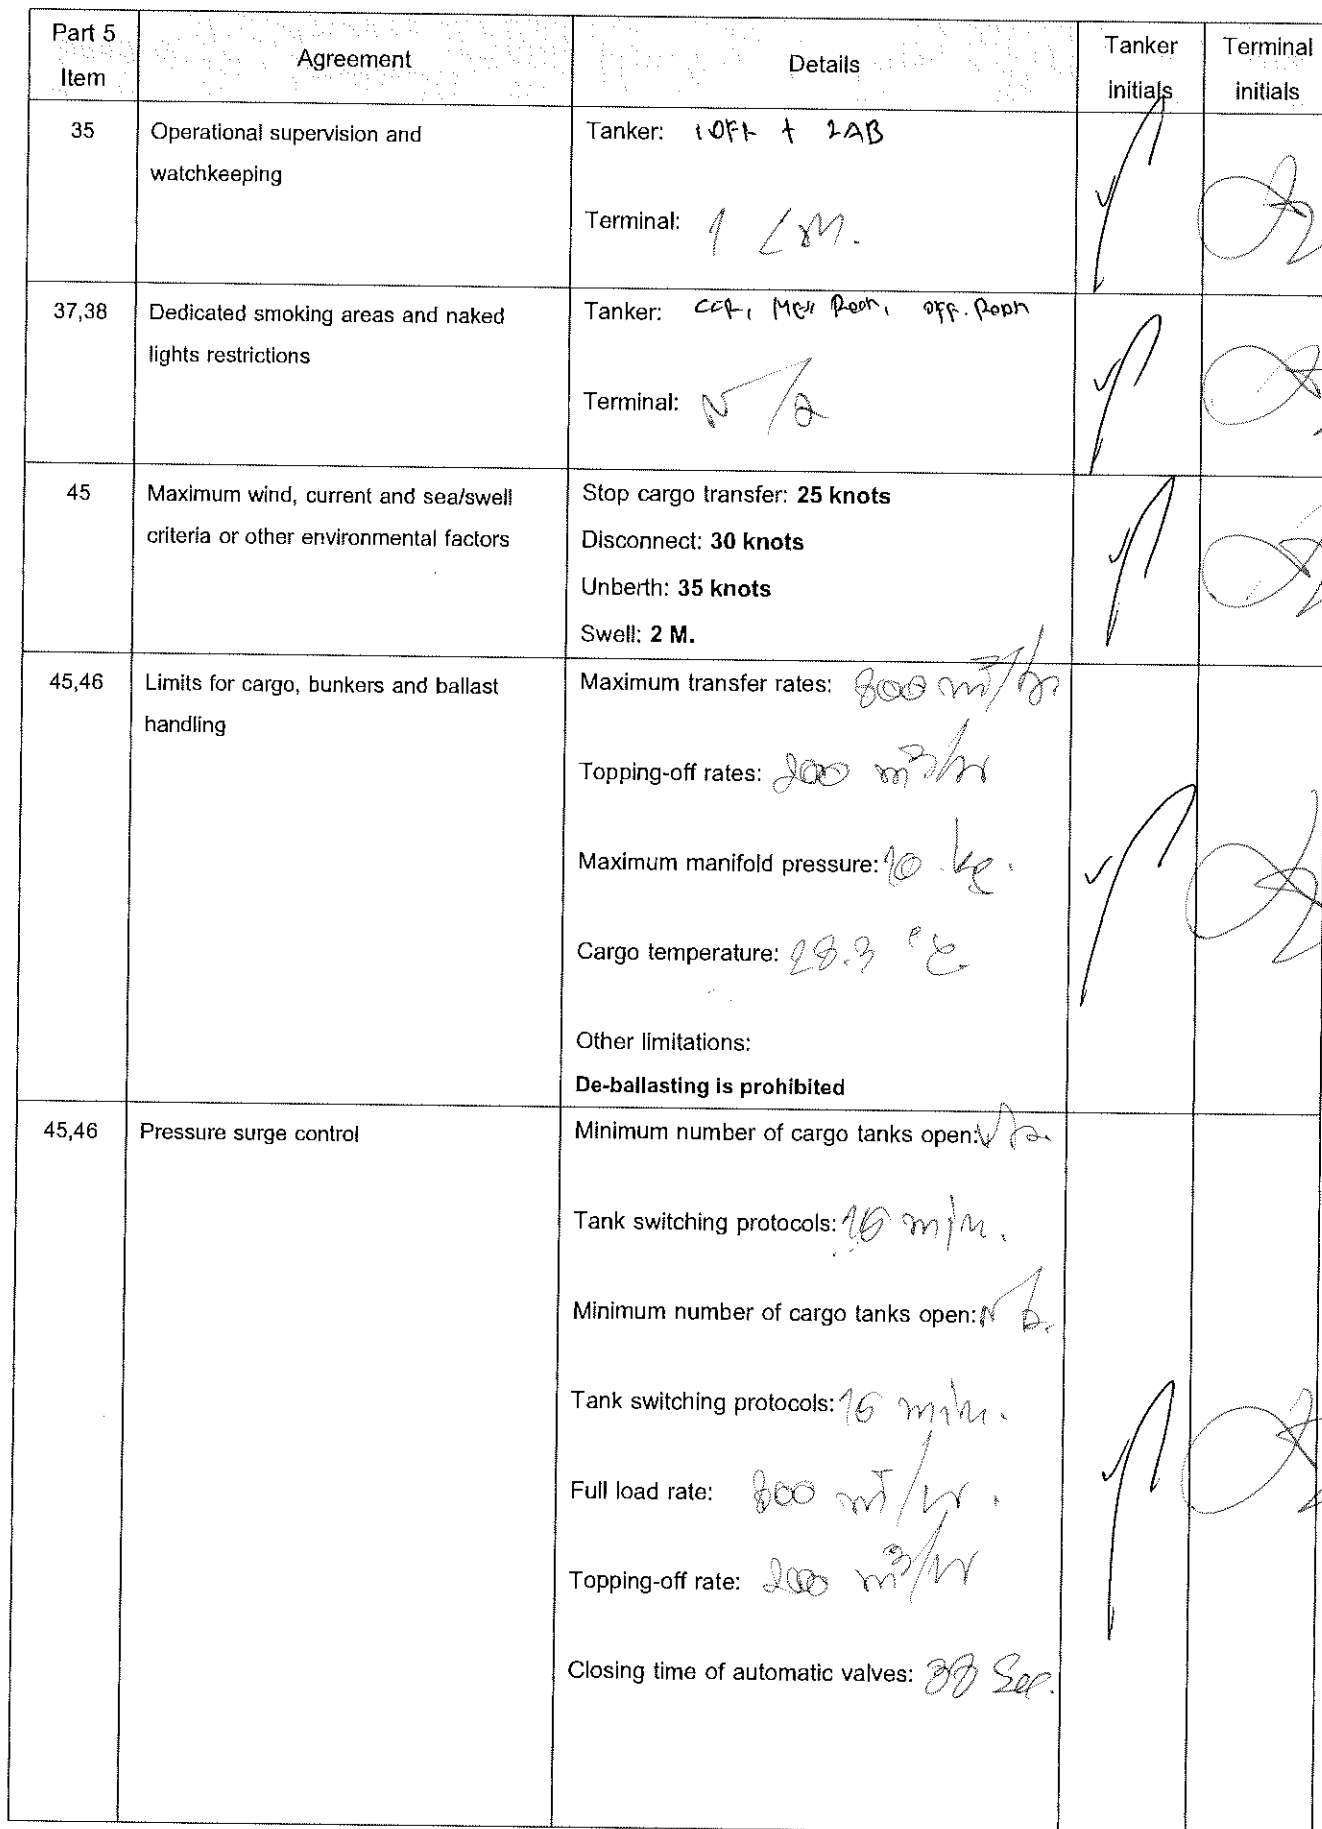 Part 5
Item
Agreement
Details
Tanker
initials
Terminal
initials
35
Operational supervision and
watchkeeping
Tanker: 1 OFF + 2AB
Terminal: 1 LM.
37,38
Dedicated smoking areas and naked
lights restrictions
Tanker: CCR, Mess Room, OFF. Room
Terminal: N/a
45
Maximum wind, current and sea/swell
criteria or other environmental factors
Stop cargo transfer: 25 knots
Disconnect: 30 knots
Unberth: 35 knots
Swell: 2 M.
45,46
Limits for cargo, bunkers and ballast
handling
Maximum transfer rates: 800 m³/hr
Topping-off rates: 200 m³/hr
Maximum manifold pressure: 10 kg.
Cargo temperature: 28.3 °C
Other limitations:
De-ballasting is prohibited
45,46
Pressure surge control
Minimum number of cargo tanks open: N/a.
Tank switching protocols: 15 min.
Minimum number of cargo tanks open: N/a.
Tank switching protocols: 15 min.
Full load rate: 800 m³/hr.
Topping-off rate: 200 m³/hr
Closing time of automatic valves: Sec.